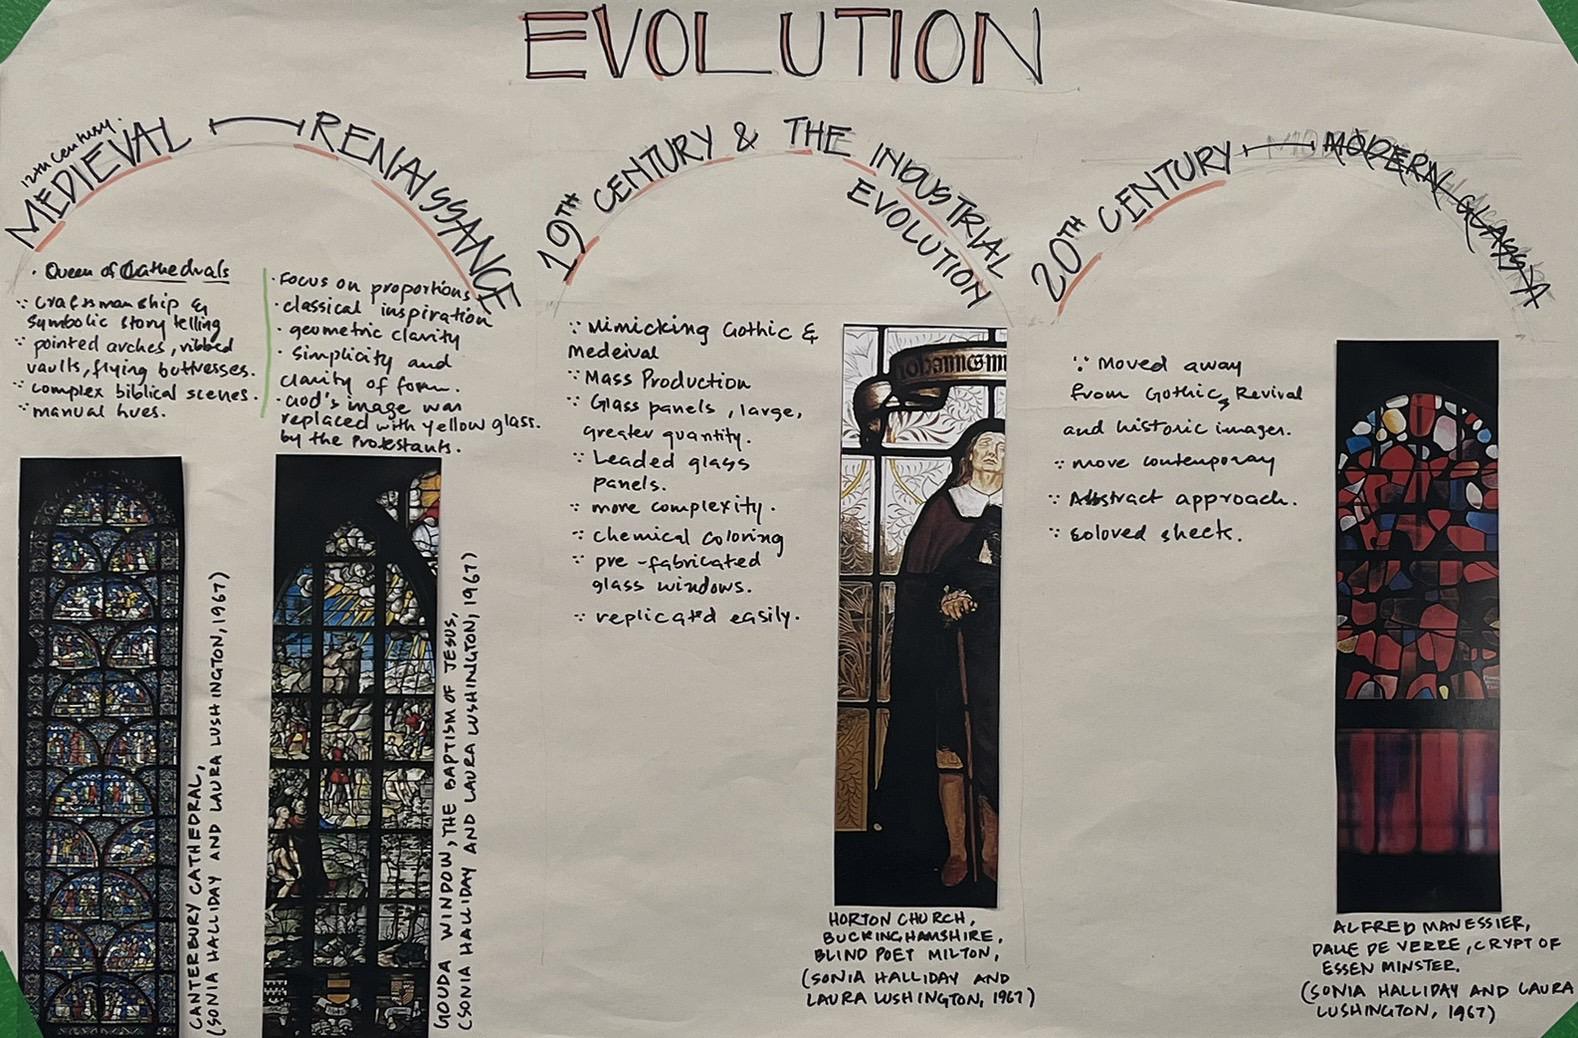 EVOLUTION
12th Century.
MEDIEVAL
RENAISSANCE
· Queen of Cathedrals
∵ Craftsmanship &
symbolic story telling
∵ pointed arches, ribbed
vaults, flying buttresses.
∵ complex biblical scenes.
∵ manual hues.
· Focus on proportions
· classical inspiration
· geometric clarity
· Simplicity and
clarity of form.
· God's image was
replaced with yellow glass.
by the Protestants.
CANTERBURY CATHEDRAL,
(SONIA HALLIDAY AND LAURA LUSHINGTON, 1967)
GOUDA WINDOW, THE BAPTISM OF JESUS,
(SONIA HALLIDAY AND LAURA LUSHINGTON, 1967)
19TH CENTURY & THE INDUSTRIAL
EVOLUTION
∵ Mimicking Gothic &
Medeival
∵ Mass Production
∵ Glass panels, large,
greater quantity.
∵ Leaded glass
panels.
∵ more complexity.
∵ chemical coloring
∵ pre-fabricated
glass windows.
∵ replicated easily.
HORTON CHURCH,
BUCKINGHAMSHIRE,
BLIND POET MILTON,
(SONIA HALLIDAY AND
LAURA LUSHINGTON, 1967)
20TH CENTURY
MODERN GLASS
∵ Moved away
from Gothic, Revival
and historic images.
∵ more contempory
∵ Abstract approach.
∵ Coloved sheets.
ALFRED MANESSIER,
DALLE DE VERRE, CRYPT OF
ESSEN MINSTER.
(SONIA HALLIDAY AND LAURA
LUSHINGTON, 1967)